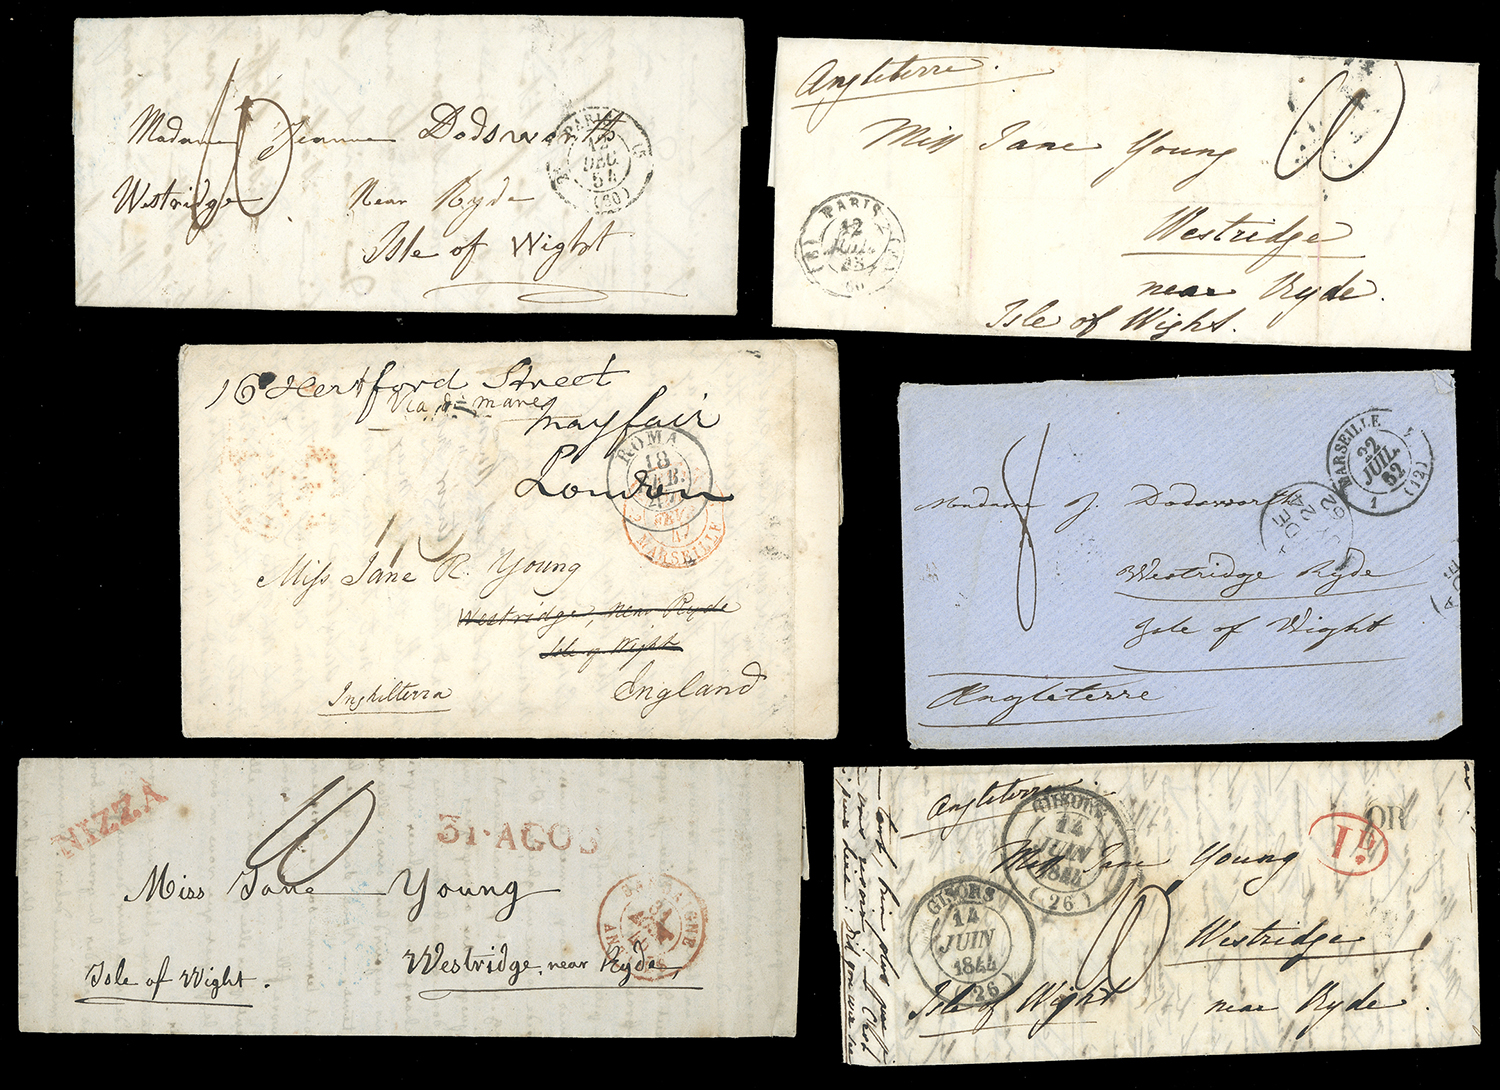 Madame Jeanne Dodsworth
Westridge near Ryde
Isle of Wight
10
PARIS
DEC.
54
(60)
Angleterre.
Miss Jane Young
Westridge
near Ryde.
Isle of Wight.
10
PARIS
12
JUIL.
(60)
16 Hertford Street
Via di mare
Mayfair
London
ROMA
18
FEB.
MARSEILLE
Miss Jane R. Young
Westridge, near Ryde
Isle of Wight
England
Inghilterra
Madame J. Dodsworth
Westridge Ryde
Isle of Wight
Angleterre
8
MARSEILLE
22
JUIL.
62
(12)
1
RYDE
NIZZA
10
31·AGOS
Miss Jane Young
Westridge, near Ryde,
Isle of Wight.
SARDAIGNE
ANTIBES
Angleterre
Miss Jane Young
Westridge
Isle of Wight near Ryde.
10
GISORS
14
JUIN
1844
(26)
GISORS
14
JUIN
1844
(26)
OR